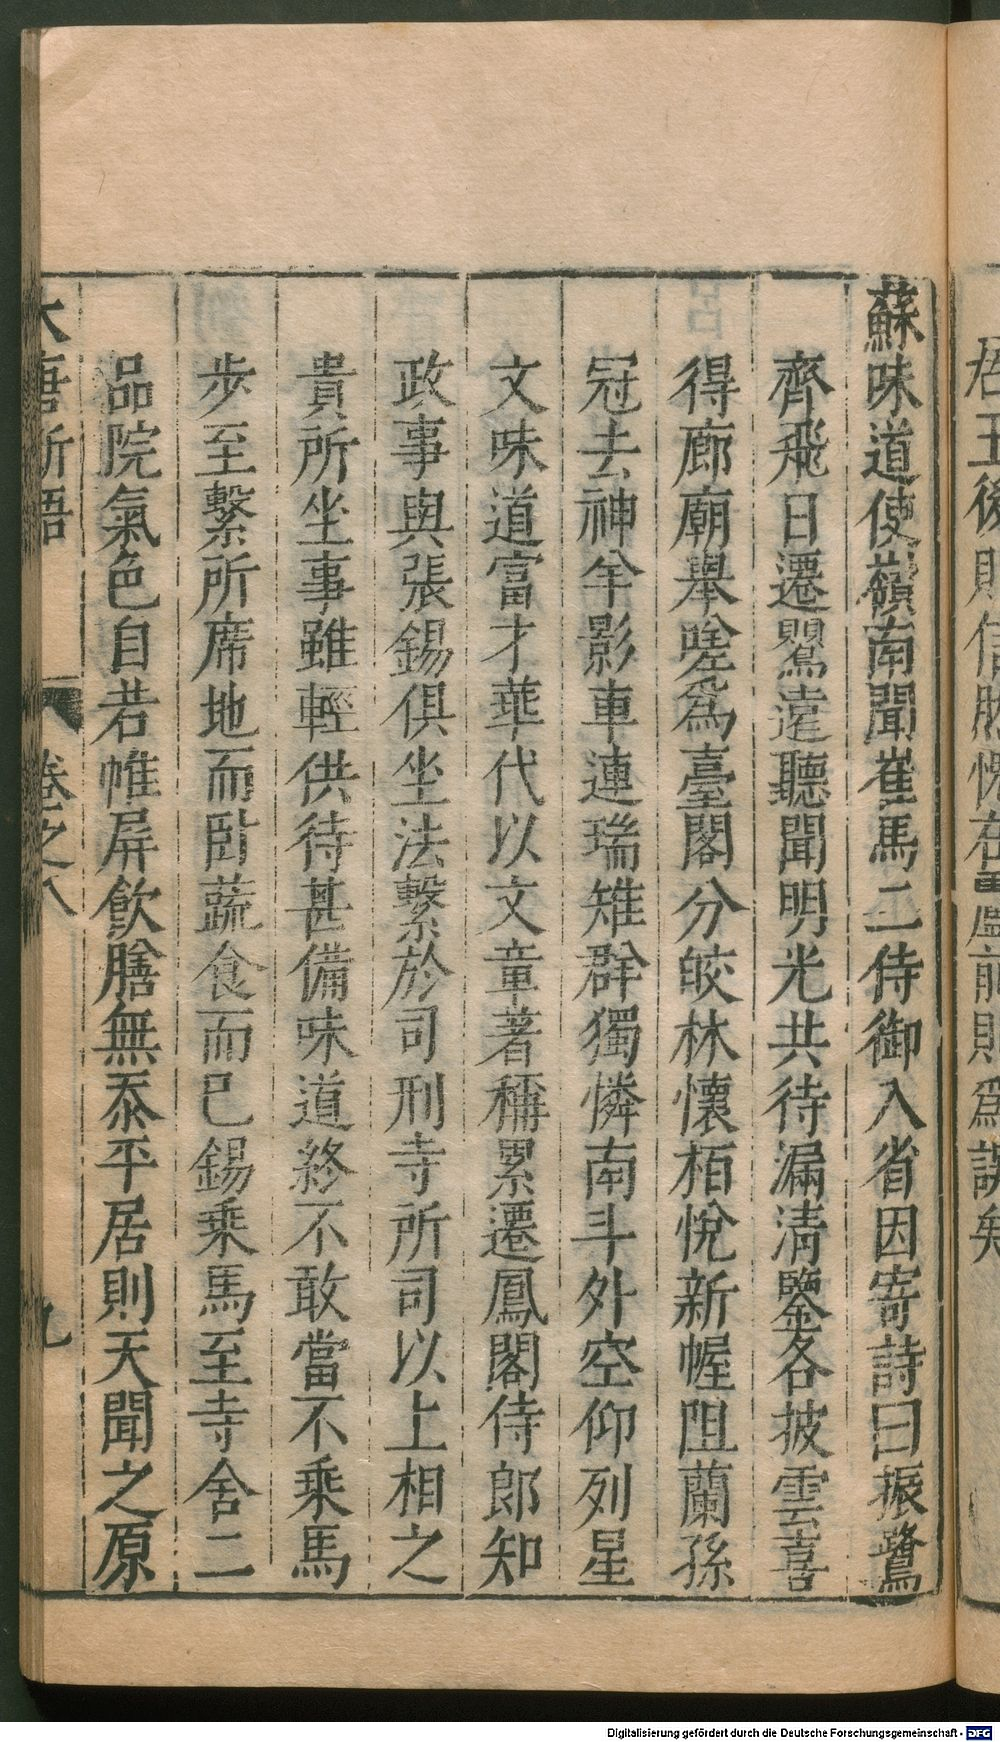 蘇味道使嶺南聞崔馬二侍御入省因寄詩曰振鷺
齊飛日遷鸎遠聽聞明光共待漏清鑒各披雲喜
得廊廟舉嗟爲臺閣分皎林懷栢悅新幄阻蘭孫
冠去神羊影車連瑞雉群獨憐南斗外空仰列星
文味道富才華代以文章著稱累遷鳳閣侍郎知
政事與張錫俱坐法繫於司刑寺所司以上相之
貴所坐事雖輕供待甚備味道終不敢當不乘馬
步至繫所席地而臥蔬食而已錫乘馬至寺舍二
品院氣色自若帷屏飲膳無忝平居則天聞之原
大唐新語
卷之八
九
后王後則信
愧在盧前則爲誤矣
Digitalisierung gefördert durch die Deutsche Forschungsgemeinschaft - DFG